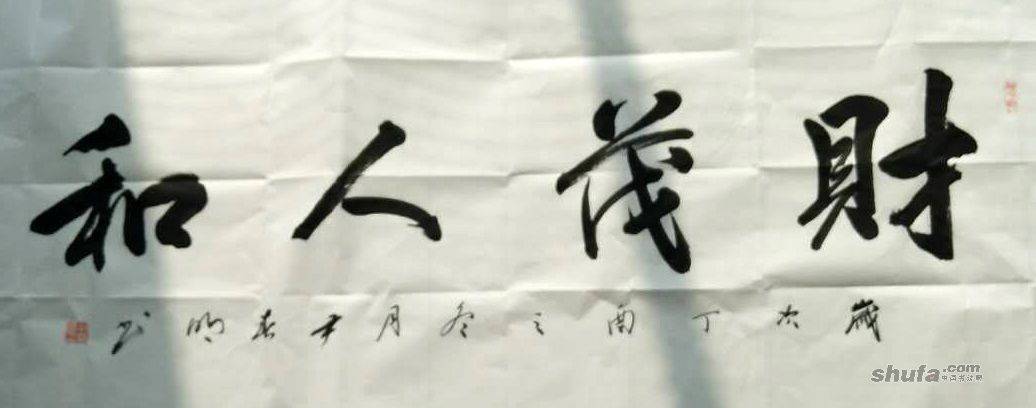 財茂人和
歲次丁酉之冬月尹春明书
shufa.com